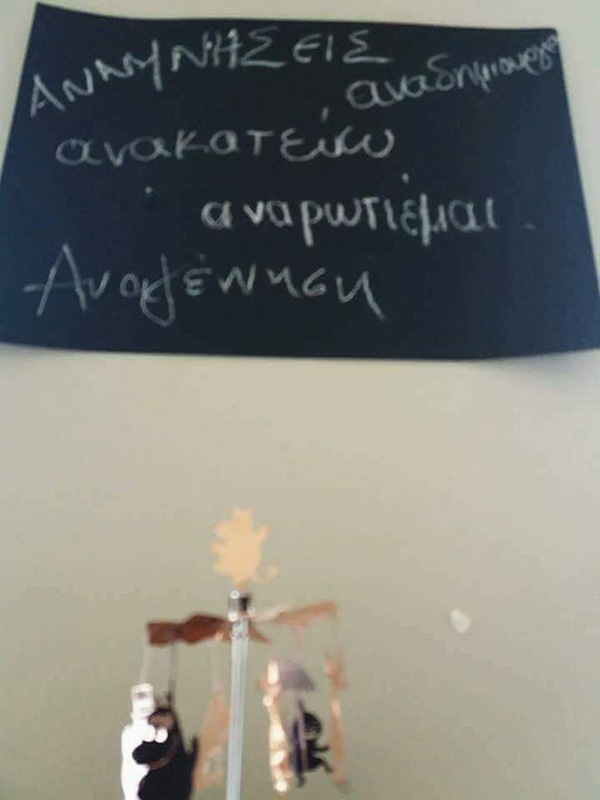 ΑΝΑΜΝΗΣΕΙΣ
αναδημιουργώ
ανακατεύω
αναρωτιέμαι
Αναγέννηση